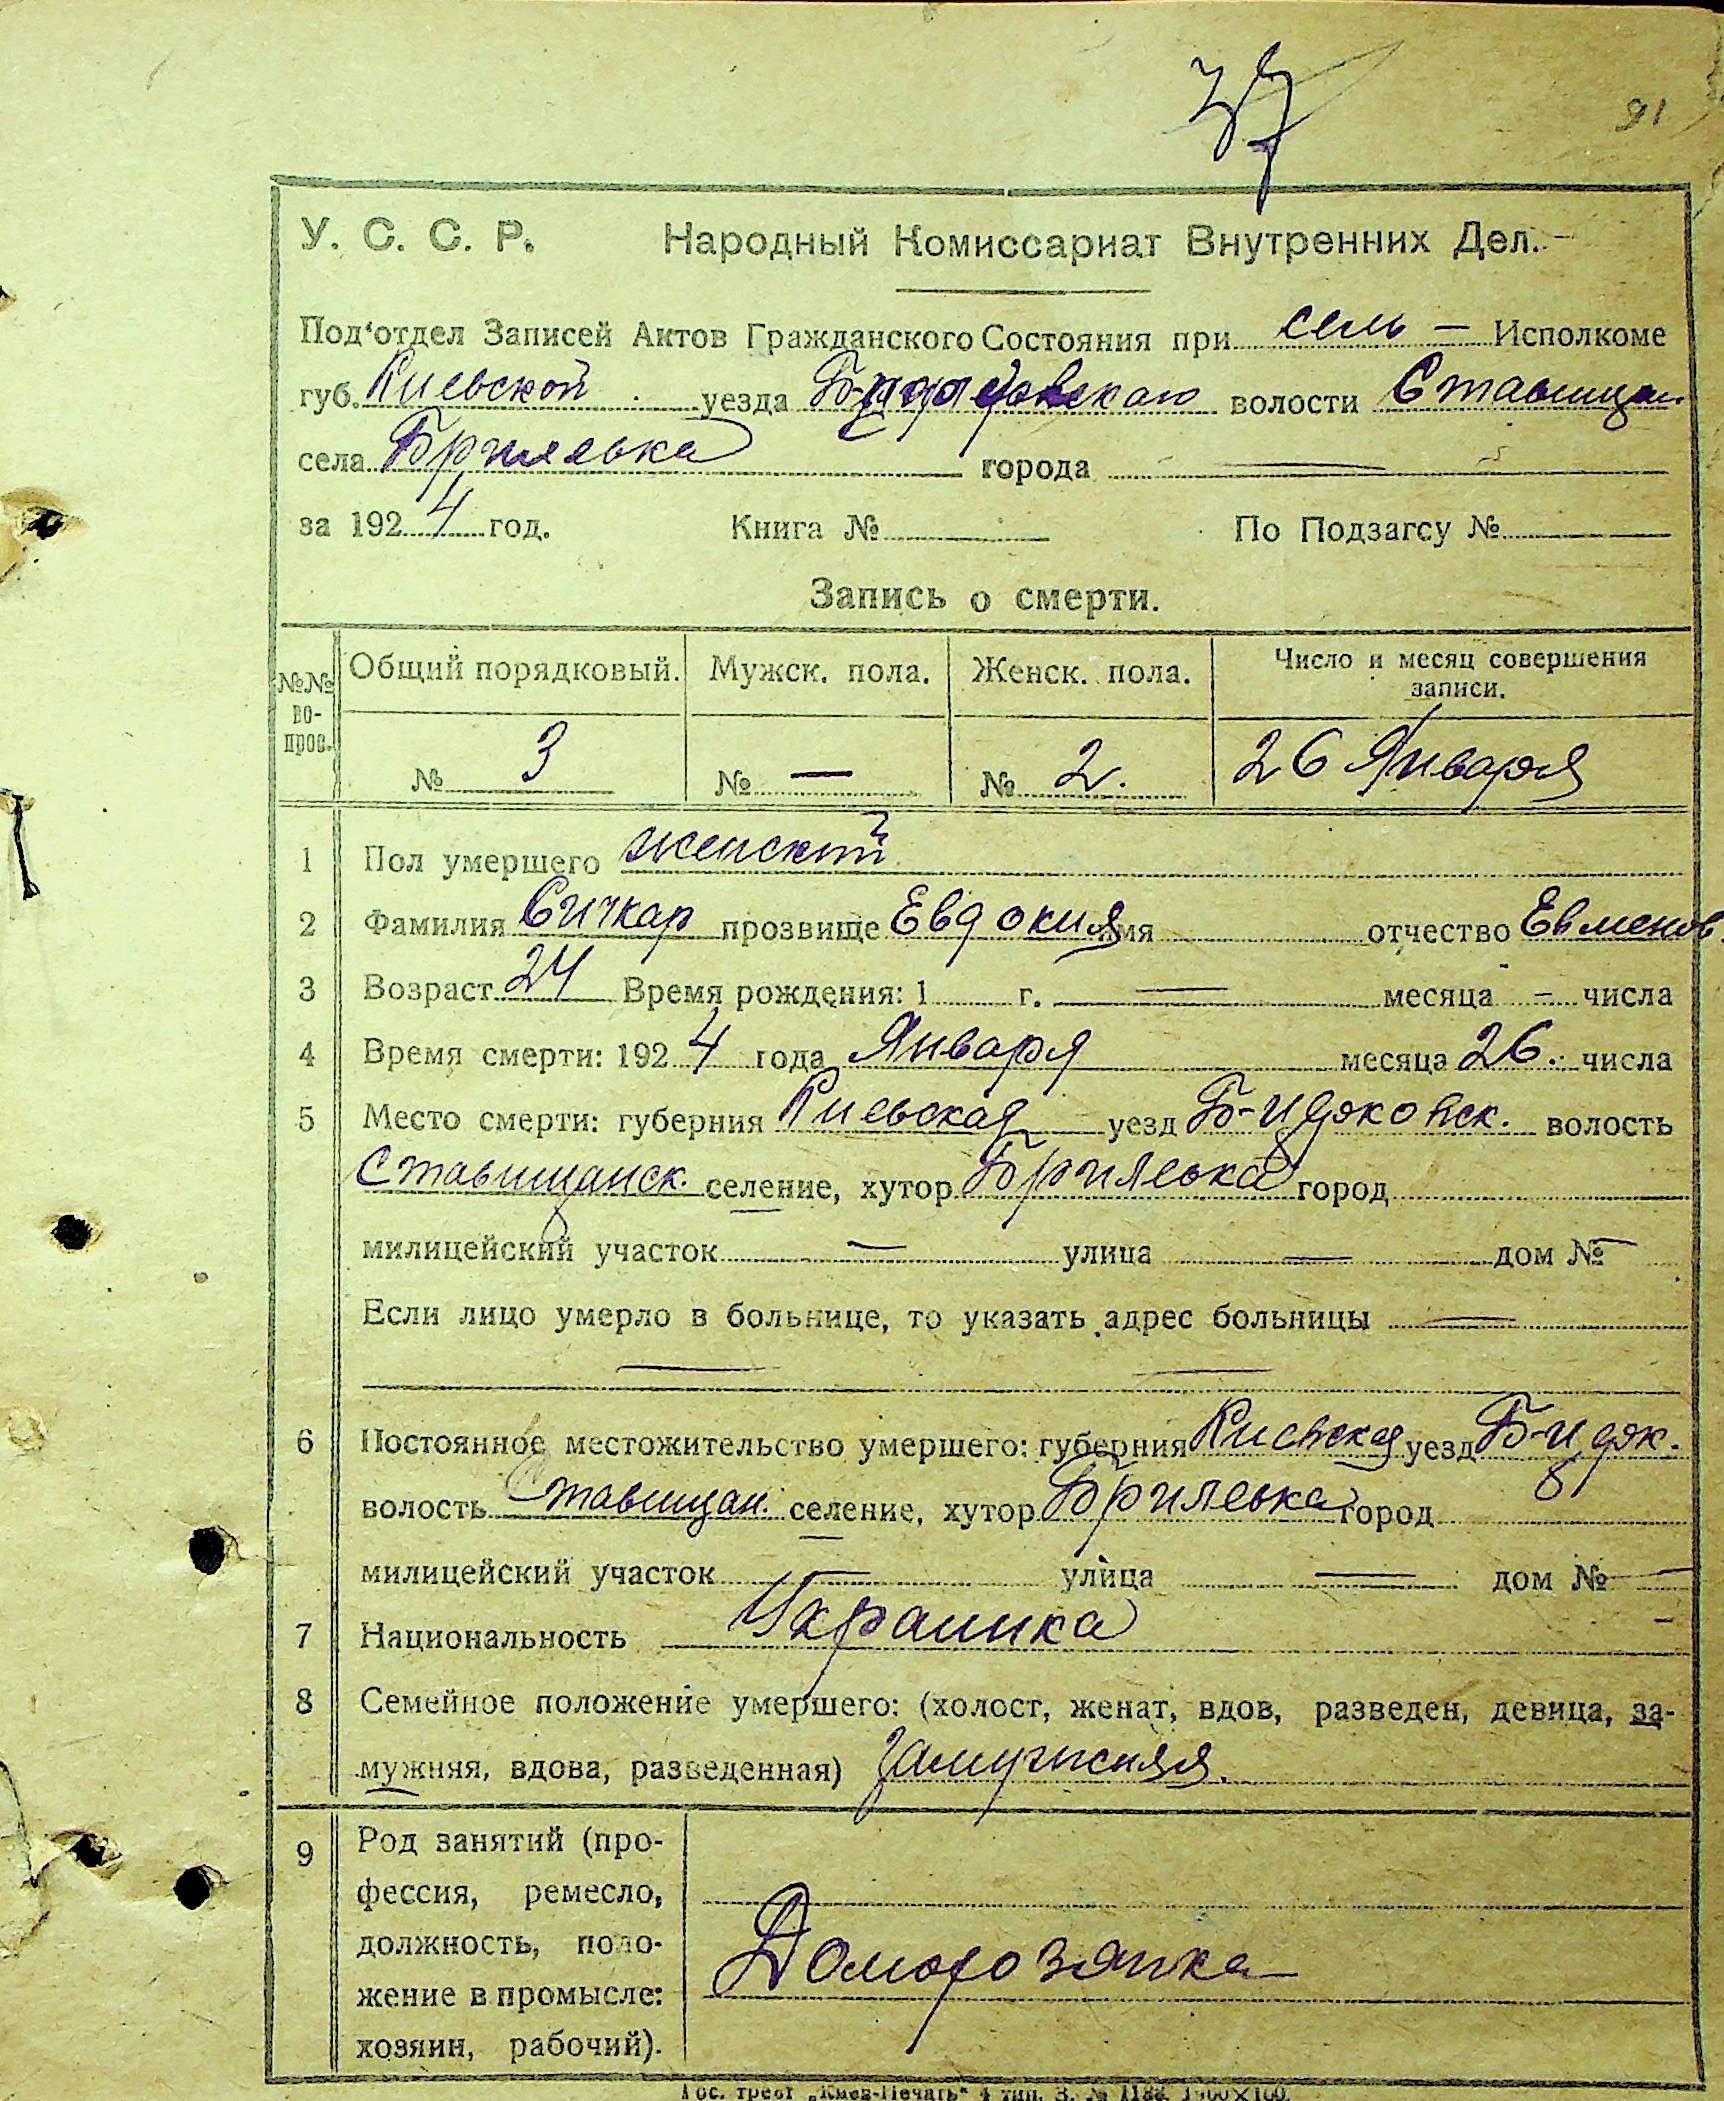 37
91
У. С. С. Р. Народный Комиссариат Внутренних Дел.
Под'отдел Записей Актов Гражданского Состояния при сель — Исполкоме
губ. Киевской уезда волости Ставищан.
села Брилевка города —
за 1924 год. Книга № По Подзагсу №
Запись о смерти.
№№ вопрос. Общий порядковый. Мужск. пола. Женск. пола. Число и месяц совершения записи.
№ 3 № — № 2. 26 Января
1 Пол умершего женский
2 Фамилия Сичкар прозвище Евдокия имя отчество Евменов.
3 Возраст 24 Время рождения: 1 г. — месяца - числа
4 Время смерти: 1924 года Января месяца 26. числа
5 Место смерти: губерния Киевская уезд волость
Ставищанск. селение, хутор Брилевка город
милицейский участок — улица — дом № —
Если лицо умерло в больнице, то указать адрес больницы —
— —
6 Постоянное местожительство умершего: губерния Киевская уезд
волость Ставищан. селение, хутор Брилевка город
милицейский участок — улица — дом № —
7 Национальность Украинка
8 Семейное положение умершего: (холост, женат, вдов, разведен, девица, за-
мужняя, вдова, разведенная) замужняя.
9 Род занятий (про-
фессия, ремесло,
должность, поло-
жение в промысле:
хозяин, рабочий).
Домохозяйка
Гос. трест „Киев-Печать" 4 тип. З. № 1188. 1500×100.